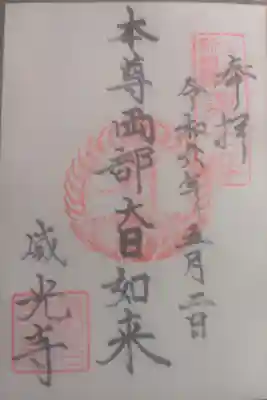 奉拝
令和六年五月二日
本尊両部大日如来
蔵光寺